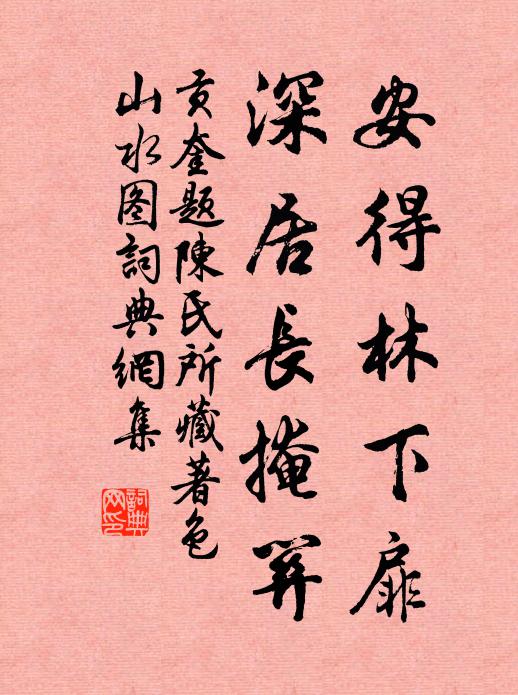 安得林下扉
深居長掩
贡奎題陳氏所藏著色
山水图詞典網集
詞典网印